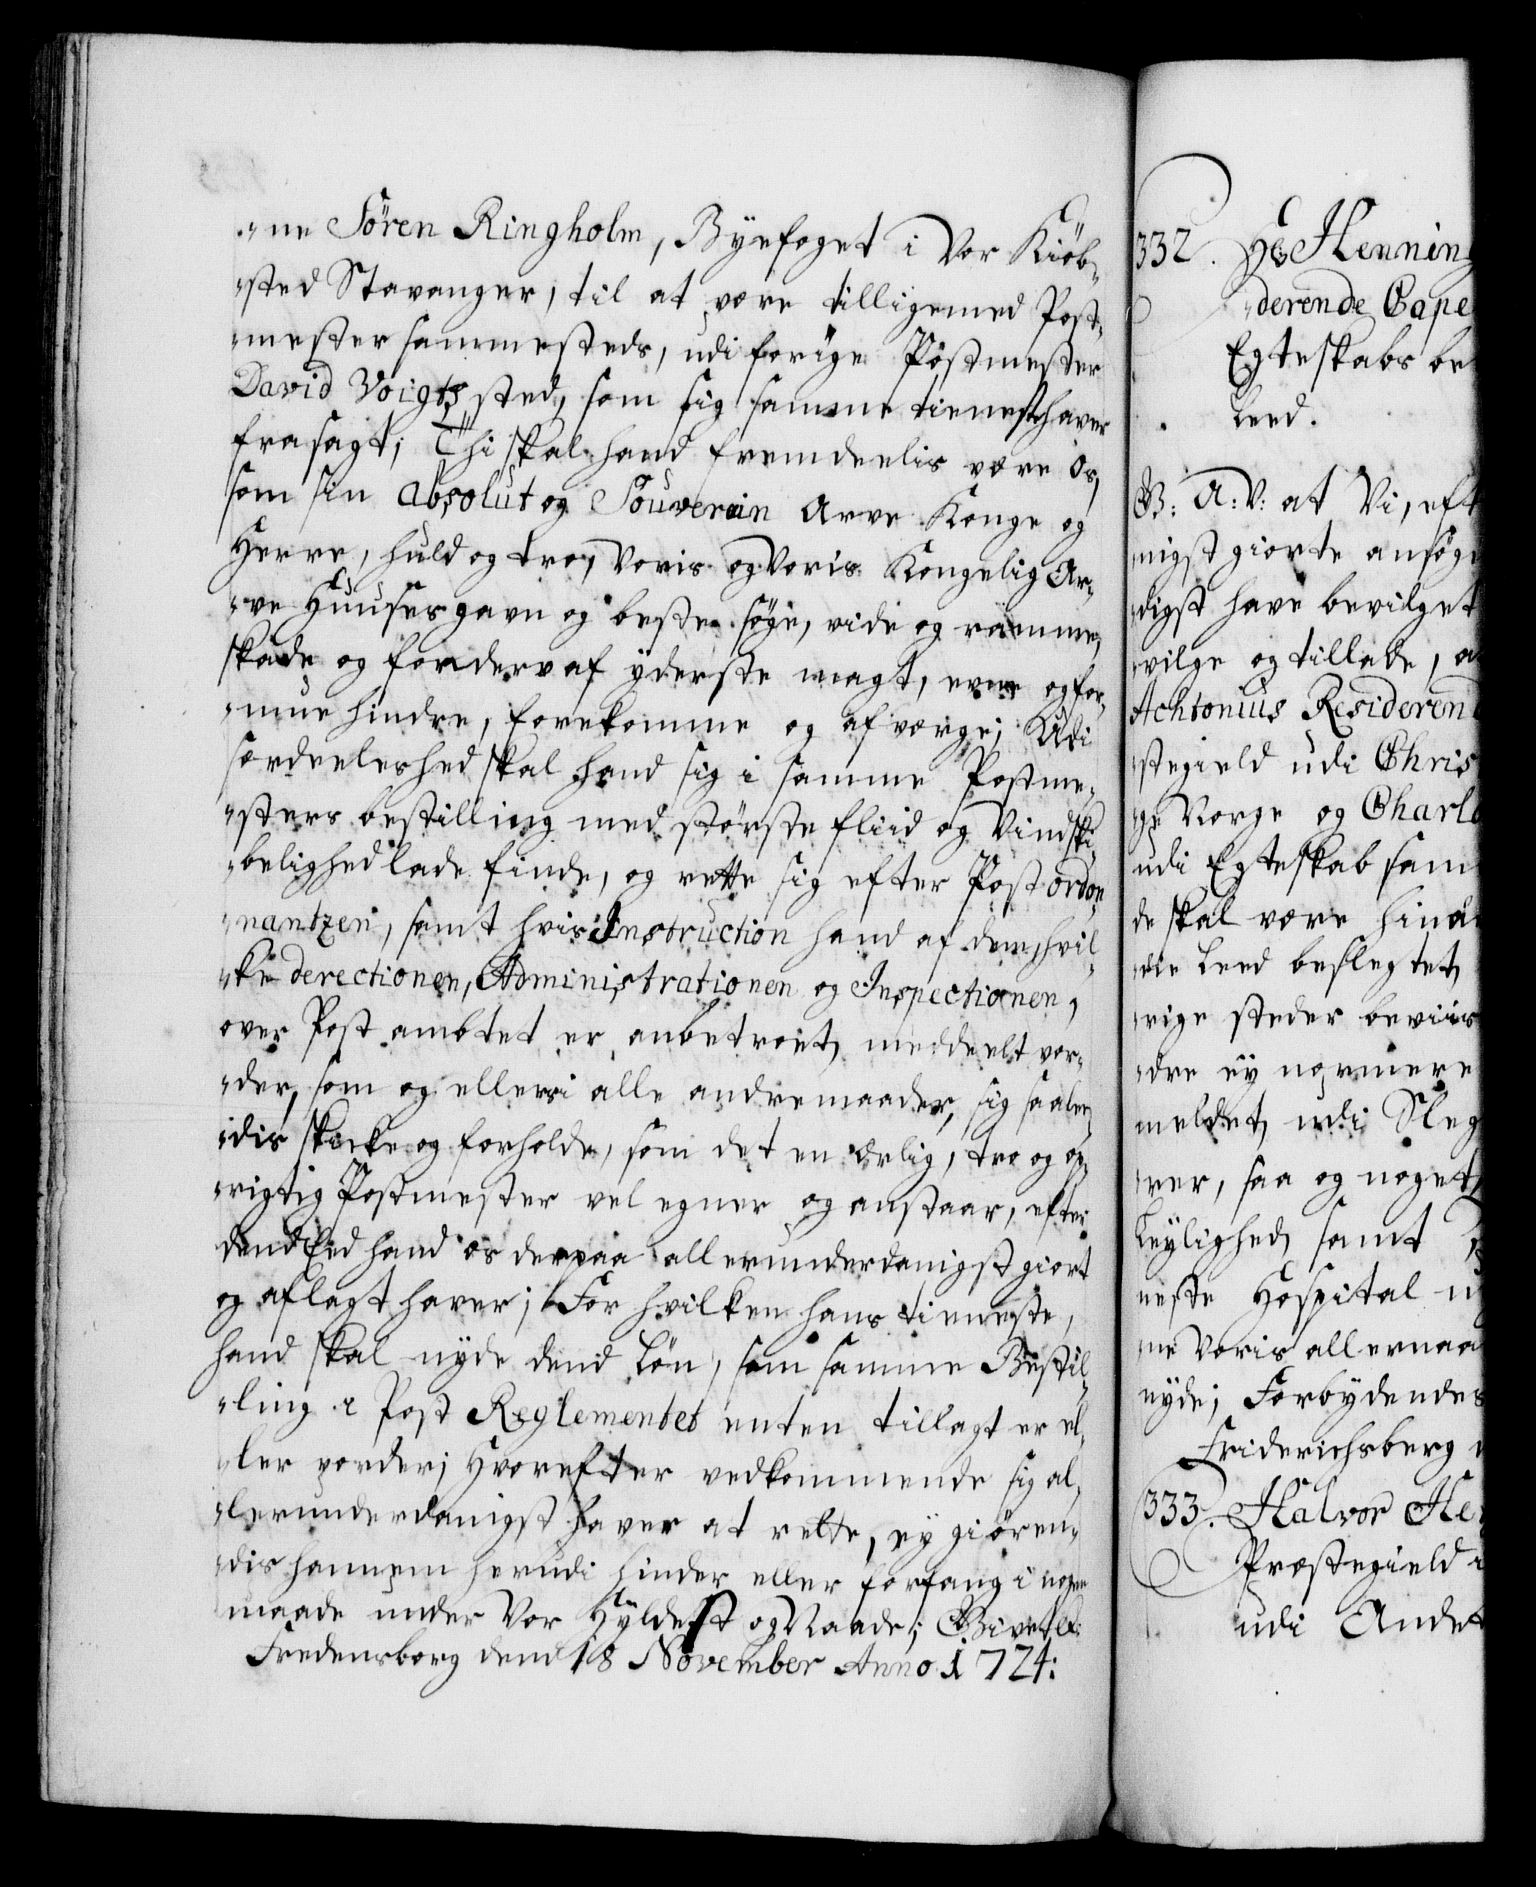 -ne Sören Ringholm, Byefoget i Vor Kiöb-
-sted Stavanger, til at være tilligemed Post-
-mester sammesteds, udi forige Postmester
David Voigts sted, som sig samme tieneste haver
frasagt; Thi skal hand fremdeelis være Os,
som sin absolut og Souverain Arve Konge og
Herre, huld og troe, Voris og Voris Kongelig Ar-
-ve Huuses gavn og beste söge, vide og ramme,
skade og forderv af yderste magt, evne og for-
-mue hindre, forekomme og afverge; Udi
særdeeleshed skal hand sig i samme Postme-
-sters bestilling med störste fliid og Vindski-
-belighed lade finde, og rette sig efter Post ordon-
-nantzen, samt hvis Instruction hand af dem, hvil-
-ke derectionen, Administrationen og Inspectionen,
over Post ambtet er anbetroet, meddeelt vor-
-der, som og ellers i alle andre maader, sig saale-
-dis skicke og forholde, som det en ærlig, tro og op-
-rigtig Postmester vel egner og anstaar, efter
dend Eed hand os derpaa allerunderdanigst giort
og aflagt haver; For hvilken hans tieneste,
hand skal nyde dend Lön, som samme Bestil-
-ling i Post Reglementet enten tillagt er el-
-ler vorder; Hvorefter vedkommende sig al-
-lerunderdanigst haver at rette, ey giören-
-dis hannem herudi hinder eller forfang i nogen
maade under Vor Hyldest og Naade; Givet
Fredensborg dend 18 November Anno 1724:
332. Hr Henning
-derende Cape
Egteskabs be
Leed.
G: A: V: at Vi, eft
-nigst giorte ansög
-digst have bevilget
-vilge og tillade, a
Achtonius Residerend
-stegield udi Chris
-ge Norge og Charlo
udi Egteskab sam
de skal være hina
-die Leed beslegtet,
-rige steder beviis
-dre ey nærmere
meldet, udi Sleg
-rer, saa og noget
Leylighed, samt
neste Hospital u
-ne Voris allernaa
nyde; Forbydendes
Friderichsberg
333. Halvor He
Præstegield i
udi Andet